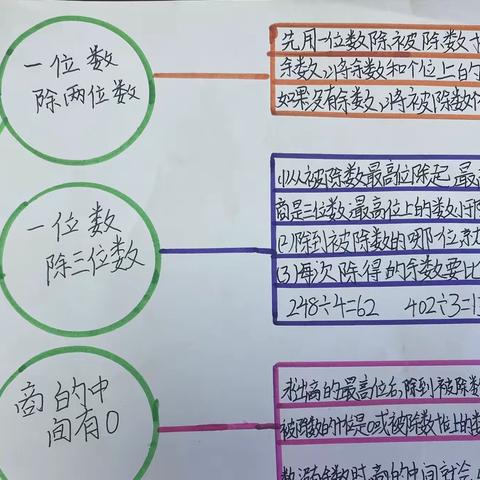 一位数
除两位数
先用一位数除被除数
余数,将余数和个位上的
如果没有余数,将被除数
一位数
除三位数
(1)从被除数最高位除起,最
商是三位数,最高位上的数小于
(2)除到被除数的哪一位,就
(3)每次除得的余数要比
248÷4=62 402÷3=1
商的中
间有0
求出商的最高位后,除到被除数
被除数的十位是0或被除数十位上的
数没有余数时,商的中间就会